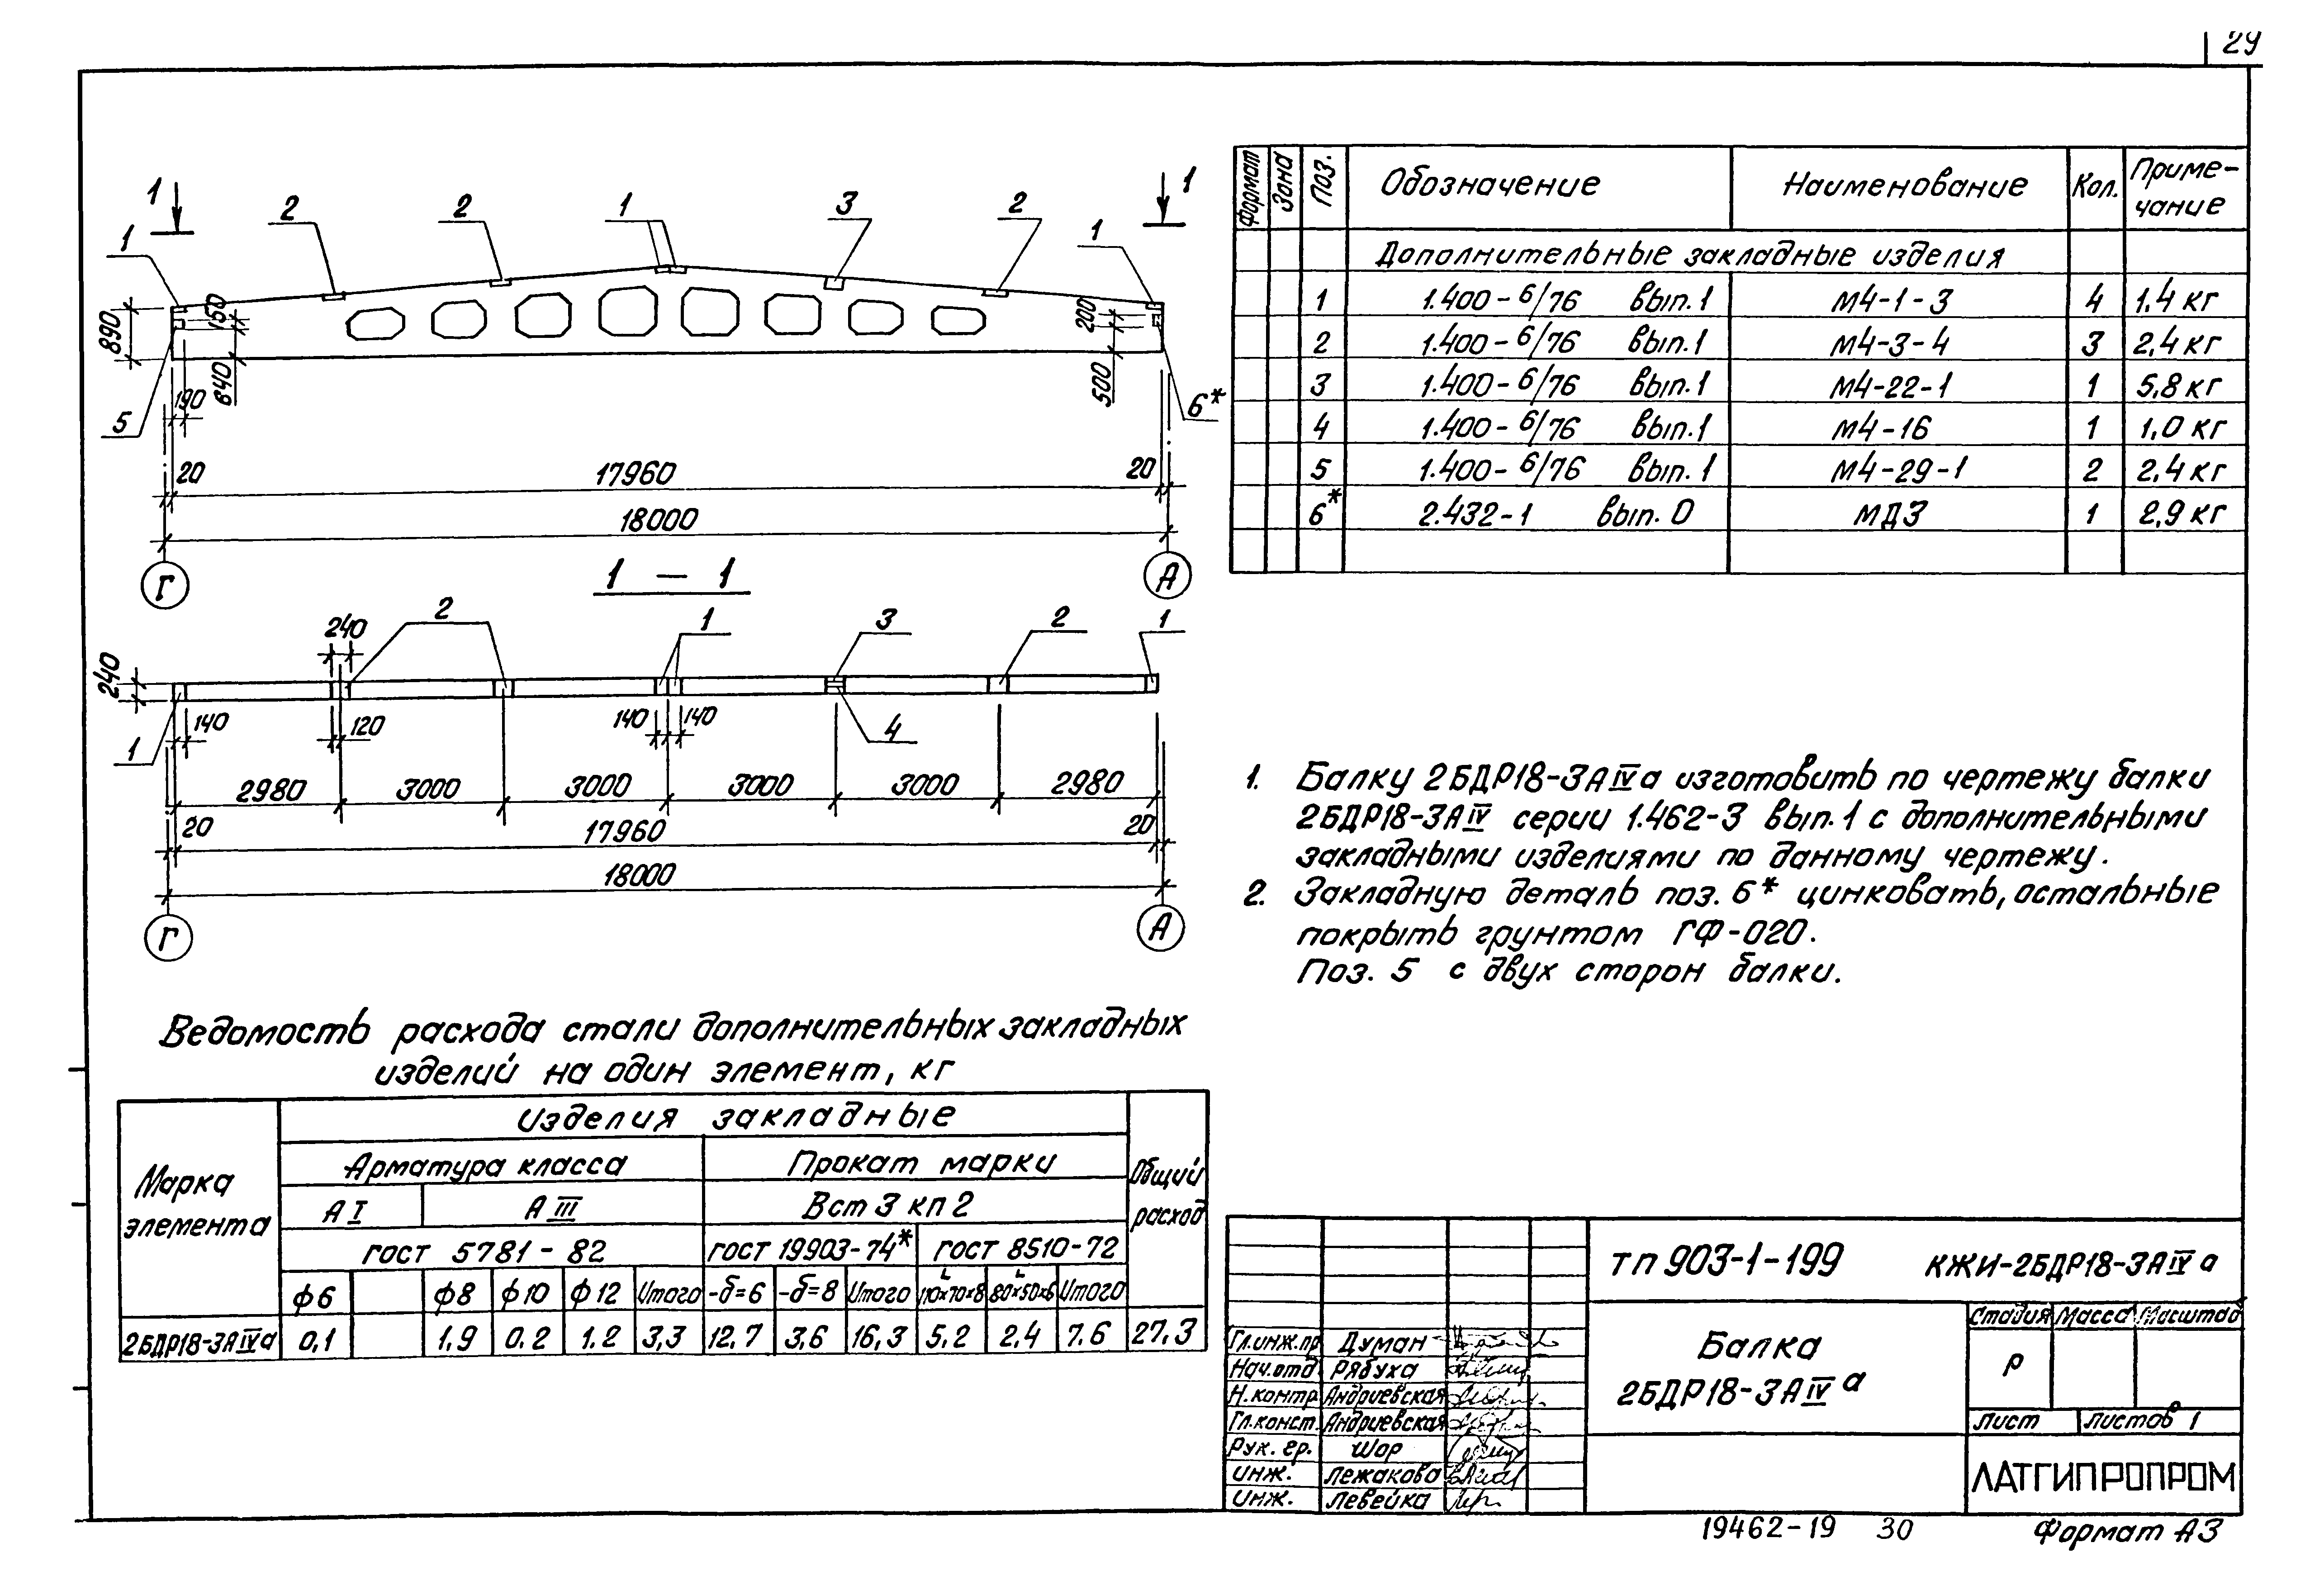 29
1 1
1 2 2 1 3 2 1
890 150 840 190 5
200 500 6*
20 17960 20
18000
Г А
1 — 1
240 2 1 3 2 1
240
1 140 120 140 140 4
2980 3000 3000 3000 3000 2980
20 17960 20
18000
Г А
Формат Зона Поз. Обозначение Наименование Кол. Приме-
чание
Дополнительные закладные изделия
1 1.400-6/76 вып.1 М4-1-3 4 1,4 кг
2 1.400-6/76 вып.1 М4-3-4 3 2,4 кг
3 1.400-6/76 вып.1 М4-22-1 1 5,8 кг
4 1.400-6/76 вып.1 М4-16 1 1,0 кг
5 1.400-6/76 вып.1 М4-29-1 2 2,4 кг
6* 2.432-1 вып. 0 МД3 1 2,9 кг
1. Балку 2БДР18-3АIVа изготовить по чертежу балки
2БДР18-3АIV серии 1.462-3 вып.1 с дополнительными
закладными изделиями по данному чертежу.
2. Закладную деталь поз. 6* цинковать, остальные
покрыть грунтом ГФ-020.
Поз. 5 с двух сторон балки.
Ведомость расхода стали дополнительных закладных
изделий на один элемент, кг
Марка
элемента
Изделия закладные
Общий
расход
Арматура класса Прокат марки
А I А III Вст 3 кп 2
гост 5781-82 гост 19903-74* гост 8510-72
ф6 ф8 ф10 ф12 Итого -δ=6 -δ=8 Итого L110×70×8 L80×50×6 Итого
2БДР18-3АIVа 0,1 1,9 0,2 1,2 3,3 12,7 3,6 16,3 5,2 2,4 7,6 27,3
тп 903-1-199 КЖИ-2БДР18-3АIV а
Балка
2БДР18-3АIV а
Стадия Масса Масштаб
Р
Лист Листов 1
ЛАТГИПРОПРОМ
Гл.инж.пр Думан
Нач.отд. Рябуха
Н.контр. Андриевская
Гл.конст. Андриевская
Рук. гр. Шор
инж. Лежакова
инж. Левейка
19462-19 30 Формат А3